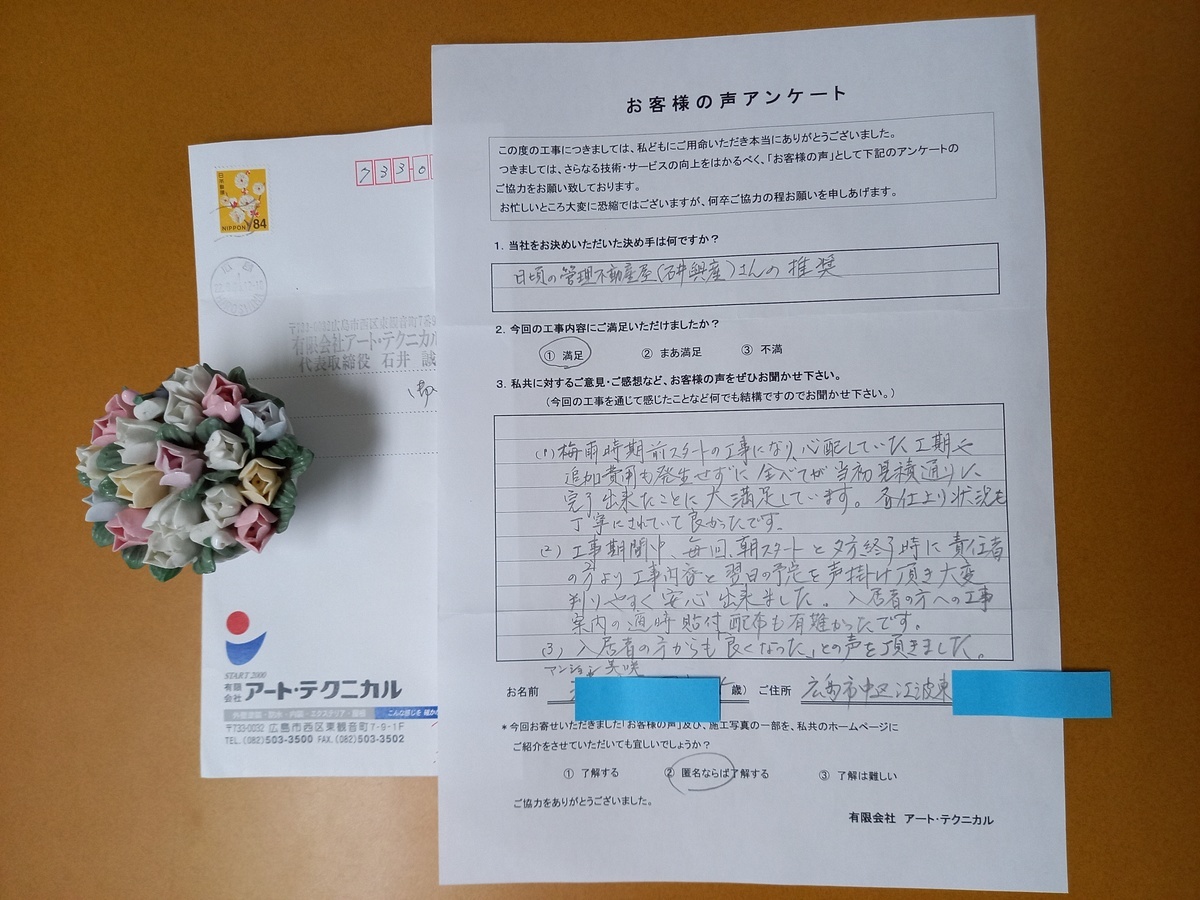 お客様の声アンケート
この度の工事につきましては、私どもにご用命いただき本当にありがとうございました。
つきましては、さらなる技術・サービスの向上をはかるべく、「お客様の声」として下記のアンケートの
ご協力をお願い致しております。
お忙しいところ大変に恐縮ではございますが、何卒ご協力の程お願いを申しあげます。
1. 当社をお決めいただいた決め手は何ですか？
日頃の管理不動産屋(石井興産)さんの推奨
2. 今回の工事内容にご満足いただけましたか？
① 満足 ② まあ満足 ③ 不満
3. 私共に対するご意見・ご感想など、お客様の声をぜひお聞かせ下さい。
（今回の工事を通じて感じたことなど何でも結構ですのでお聞かせ下さい。）
(1) 梅雨時期前スタートの工事になり、心配していた工期や
追加費用も発生せずに全べてが当初見積通りに
完了出来たことに大満足しています。各仕上り状況も
丁寧にされていて良かったです。
(2) 工事期間中、毎回、朝スタートと夕方終了時に責任者
の方より工事内容と翌日の予定を声掛け頂き大変
判りやすく安心出来ました。入居者の方への工事
案内の適時貼付、配布も有難かったです。
(3) 入居者の方からも「良くなった」との声を頂きました。
マンション美咲
お名前 歳） ご住所 広島市中区江波東
＊今回お寄せいただきました「お客様の声」及び、施工写真の一部を、私共のホームページに
ご紹介をさせていただいても宜しいでしょうか？
① 了解する ② 匿名ならば了解する ③ 了解は難しい
ご協力をありがとうございました。
有限会社 アート・テクニカル
733-0
日本郵便
NIPPON 84
〒733-0032広島市西区東観音町7番
有限会社アート・テクニカル
代表取締役 石井 誠
START 2000
有限会社 アート・テクニカル
外壁塗装・防水・内装・エクステリア・屋根
〒733-0032 広島市西区東観音町7-9-1F
TEL.(082)503-3500 FAX.(082)503-3502